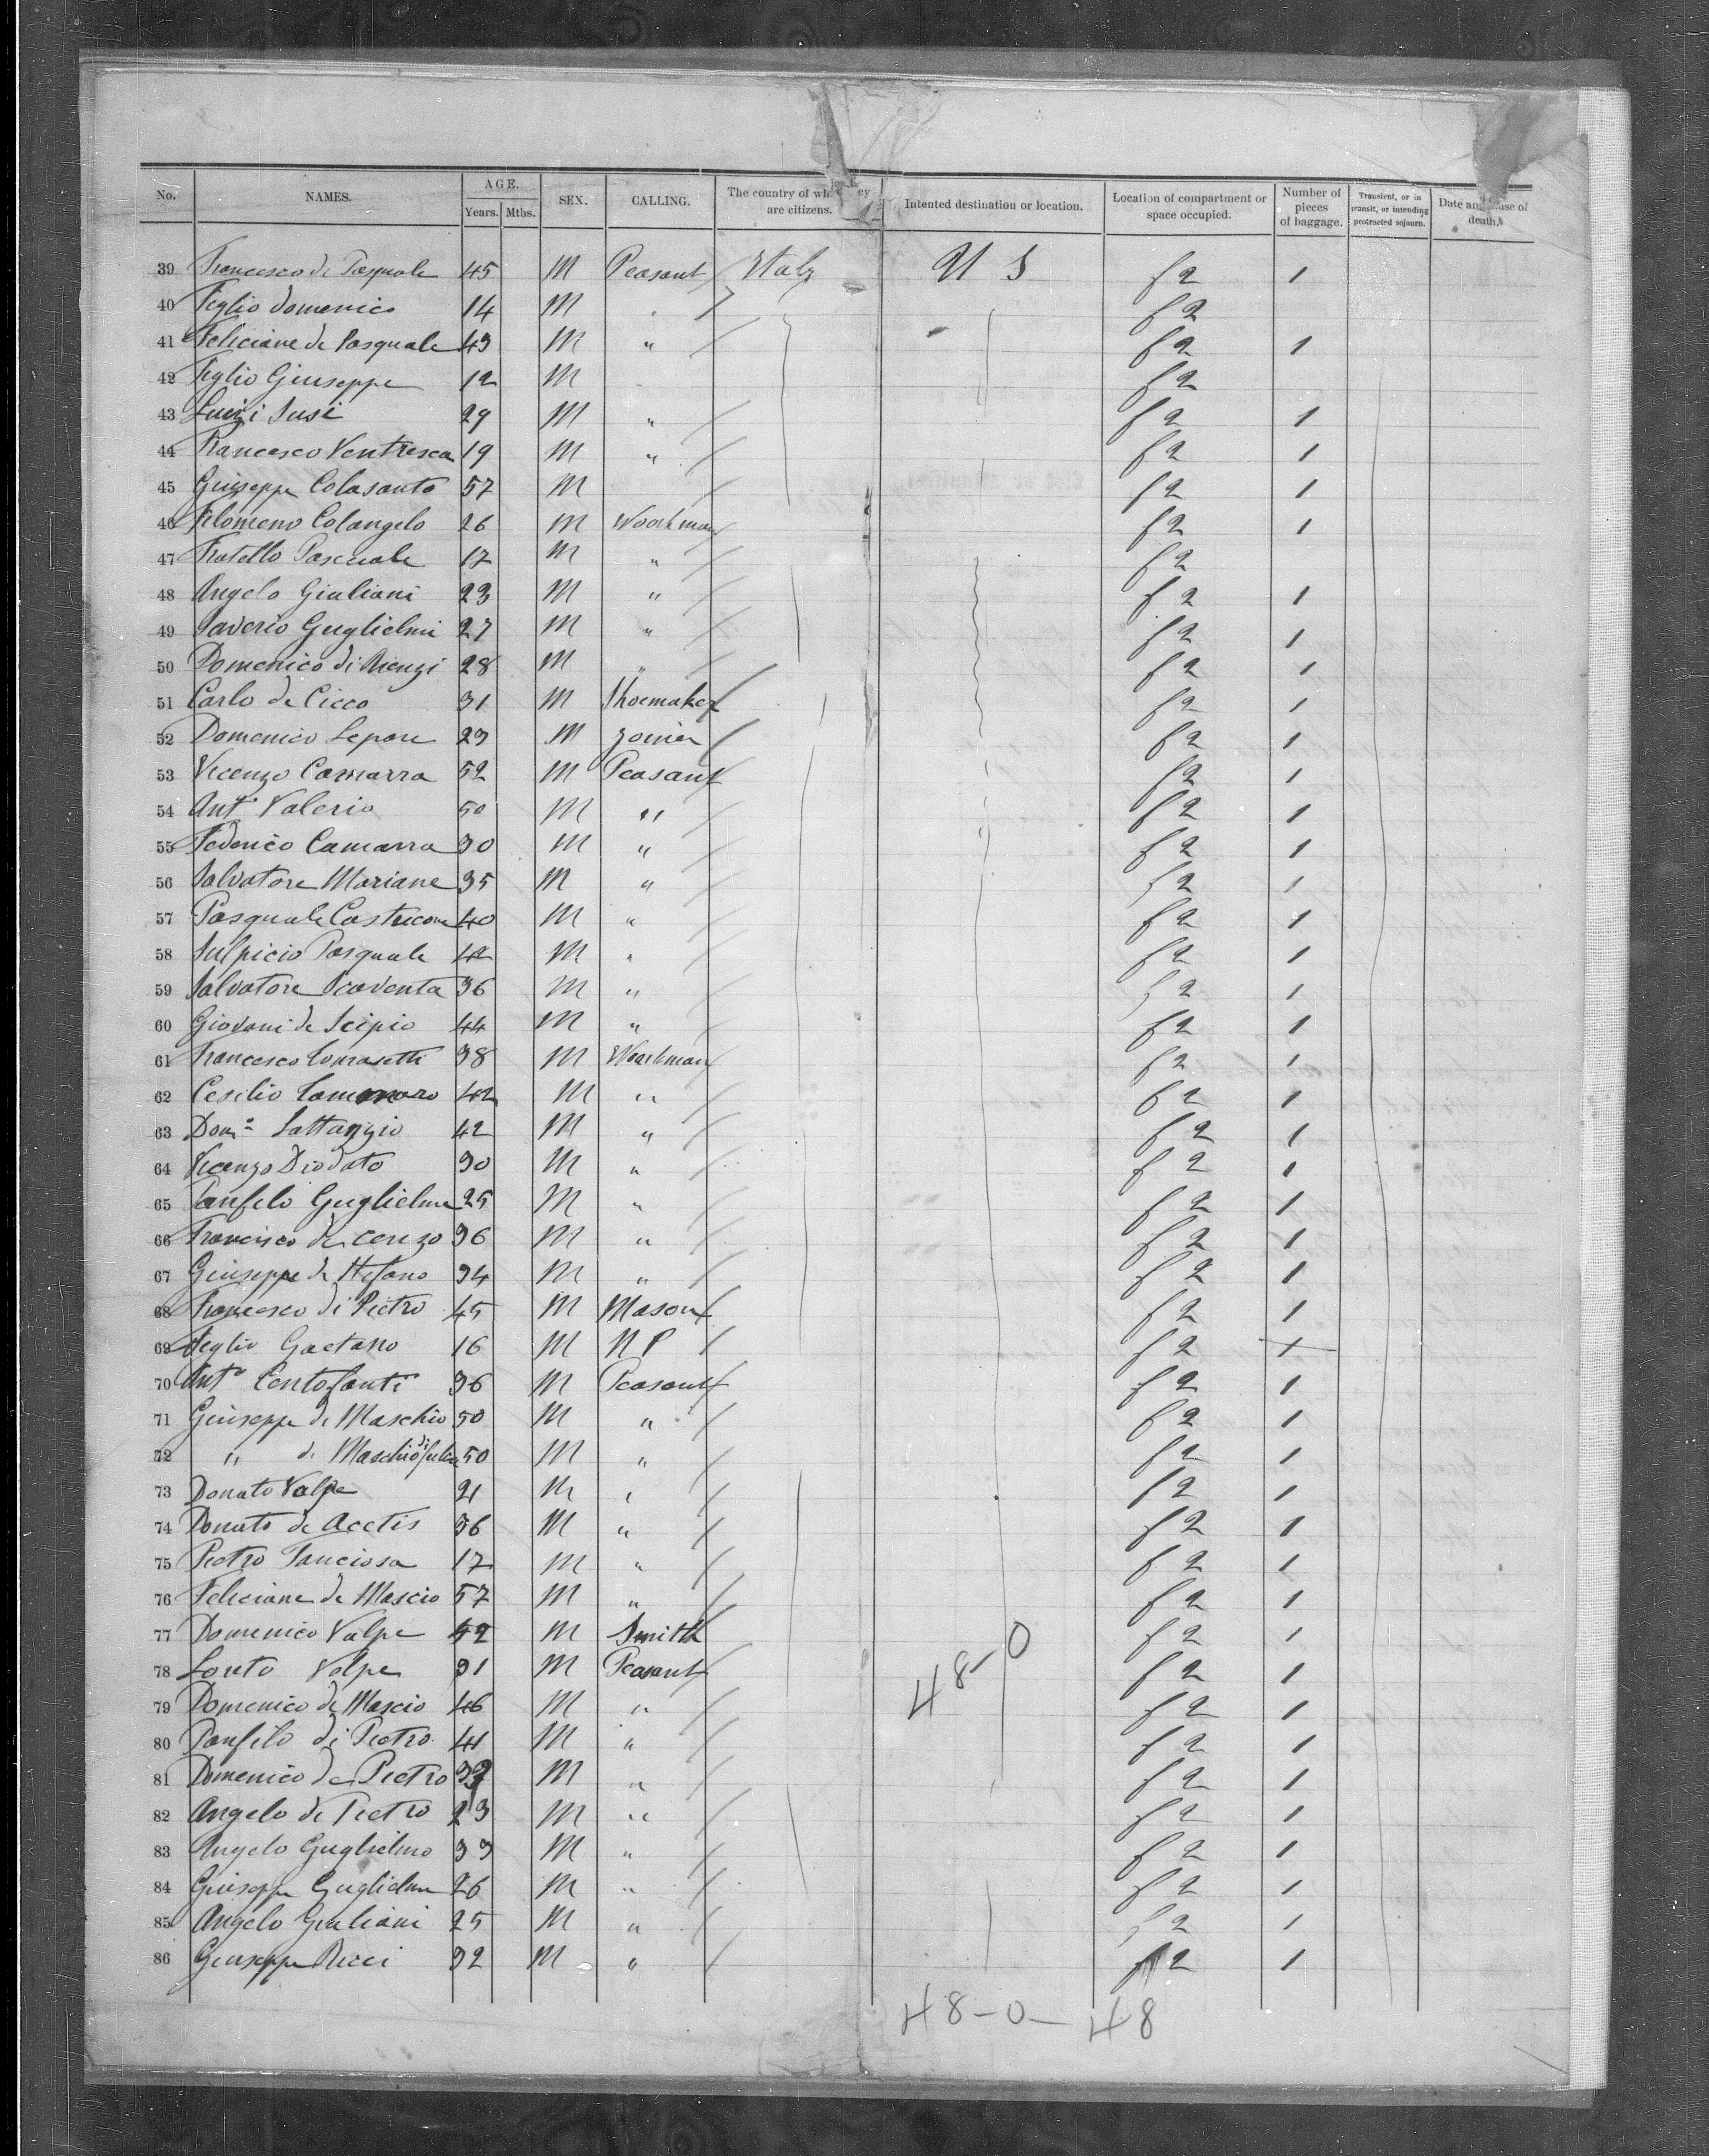 No. NAMES. AGE. Years. Mths. SEX. CALLING. The country of which they are citizens. Intented destination or location. Location of compartment or space occupied. Number of pieces of baggage. Transient, or in transit, or intending protracted sojourn. Date and cause of death.
39 Francesco de Pasquale 45 M Peasant Italy U S f 2 1
40 Figlio Domenico 14 M f 2
41 Feliciane de Pasquale 43 M " f 2 1
42 Figlio Giuseppe 12 M f 2
43 Luigi Susi 29 M " f 2 1
44 Francesco Ventresca 19 M " f 2 1
45 Giuseppe Colasanto 57 M f 2 1
46 Filomeno Colangelo 26 M Woorkman f 2 1
47 Fratello Pascuale 17 M " f 2
48 Angelo Giuliani 23 M " f 2 1
49 Saverio Guglielmi 27 M " f 2 1
50 Domenico di Rienzi 28 M " f 2 1
51 Carlo de Cicco 31 M Shoemaker f 2 1
52 Domenico Lepore 23 M Joiner f 2 1
53 Vicenzo Camarra 52 M Peasant f 2 1
54 Anto Valerio 50 M " f 2 1
55 Federico Camarra 30 M " f 2 1
56 Salvatore Mariane 35 M " f 2 1
57 Pasquale Castricone 40 M " f 2 1
58 Sulpicio Pasquale 42 M " f 2 1
59 Salvatore Scaventa 36 M " f 2 1
60 Giovani de Scipio 44 M " f 2 1
61 Francesco Tomasetti 38 M Woorkman f 2 1
62 Cesilio 42 M " f 2 1
63 Domo Lattanzio 42 M " f 2 1
64 Vicenzo Diodato 30 M " f 2 1
65 Panfilo Guglielmo 25 M " f 2 1
66 Francisco de Cenzo 36 M " f 2 1
67 Giuseppe de Stefano 34 M " f 2 1
68 Francesco di Pietro 45 M Mason f 2 1
69 Figlio Gaetano 16 M N P f 2
70 Anto Centofanti 36 M Peasant f 2 1
71 Giuseppe de Maschio 50 M " f 2 1
72 " de Maschio di Felice 50 M " f 2 1
73 Donato Valpe 21 M " f 2 1
74 Donato de Acetis 36 M " f 2 1
75 Pietro Panciosa 17 M " f 2 1
76 Feliciane de Mascio 57 M " f 2 1
77 Domenico Valpe 42 M Smith f 2 1
78 Loreto Volpe 31 M Peasant 48-0 f 2 1
79 Domenico de Mascio 46 M " f 2 1
80 Panfilo di Pietro 41 M " f 2 1
81 Domenico de Pietro M " f 2 1
82 Angelo de Pietro 23 M " f 2 1
83 Angelo Guglielmo 33 M " f 2 1
84 Giuseppe Guglielmo 26 M " f 2 1
85 Angelo Giuliani 25 M " f 2 1
86 Giuseppe Ricci 32 M " f 2 1
48-0-48